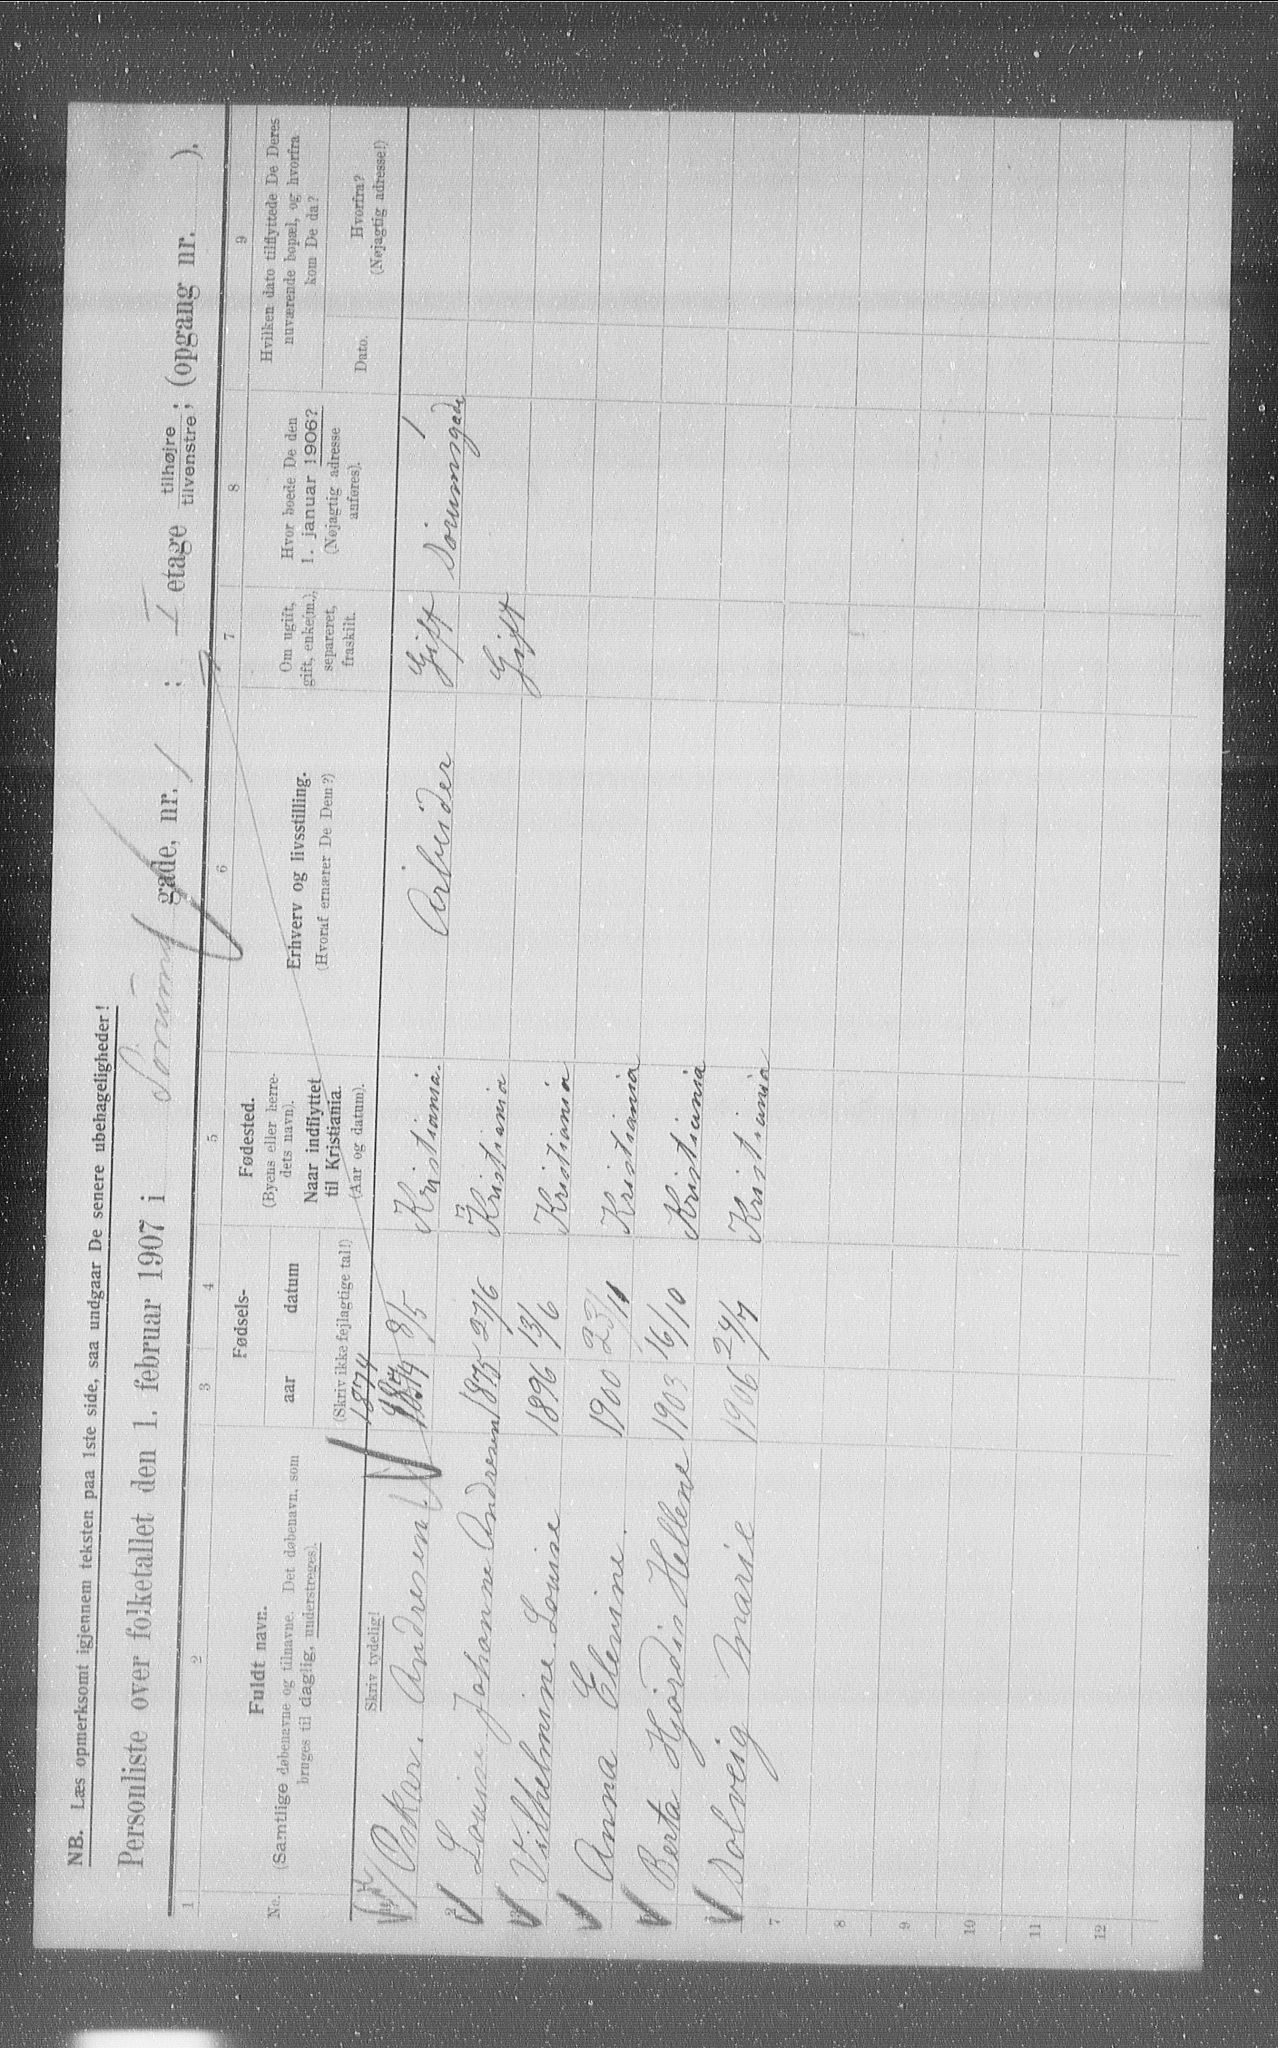 NB. Læs opmerksomt igjennem teksten paa 1ste side, saa undgaar De senere ubehageligheder!
Personliste over folketallet den 1. februar 1907 i Sorums gade, nr. 1; I etage tilhøjre; tilvenstre; (opgang nr. ).
1 2 3 4 5 6 7 8 9
No.
Fuldt navn.
(Samtlige døbenavne og tilnavne. Det døbenavn, som
bruges til daglig, understreges).
Skriv tydelig!
Fødsels-
aar datum
(Skriv ikke fejlagtige tal!)
Fødested.
(Byens eller herre-
dets navn).
Naar indflyttet
til Kristiania.
(Aar og datum).
Erhverv og livsstilling.
(Hvoraf ernærer De Dem?)
Om ugift,
gift, enke(m.),
separeret,
fraskilt.
Hvor boede De den
1. januar 1906?
(Nøjagtig adresse
anføres).
Hvilken dato tilflyttede De Deres
nuværende bopæl, og hvorfra
kom De da?
Dato.
Hvorfra?
(Nøjagtig adresse!)
1874
Oskar. Andresen. 8/5 Kristiania. Arbeider Gift Sorumsgade 1
2 Louise Johanne Andresen 1875 27/6 Kristiania Gift
Vilhelmine Louise 1896 13/6 Kristiania
Anna Elenine. 1900 23/11 Kristiania
Berta Hjördis Hellene 1903 16/10 Kristiania
Solveig Marie 1906 24/7 Kristiania
7
8
9
10
11
12